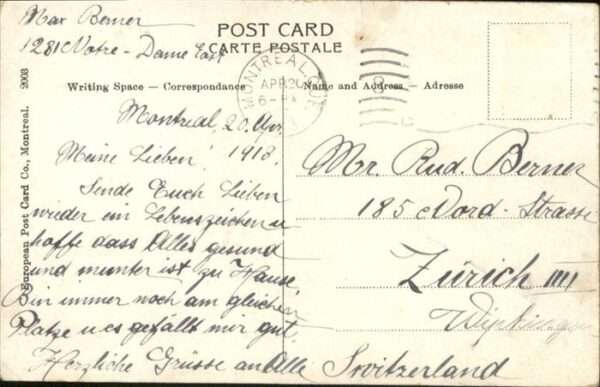 Max Berner
1281 Notre-Dame East
POST CARD
CARTE POSTALE
MONTREAL, QUE.
APR 20
6-PM
Writing Space – Correspondance
Name and Address – Adresse
Montreal, 20. Apr.
1913.
Meine Lieben!
Sende Euch Lieben
wieder ein Lebenszeichen u
hoffe dass Alles gesund
und munter ist zu Hause
Bin immer noch am gleichen
Platze u es gefällt mir gut.
Herzliche Grüsse an Alle
Mr. Rud. Berner
185 Nord-Strasse
Zürich IIII
Wipkingen
Switzerland
European Post Card Co., Montreal. 2003